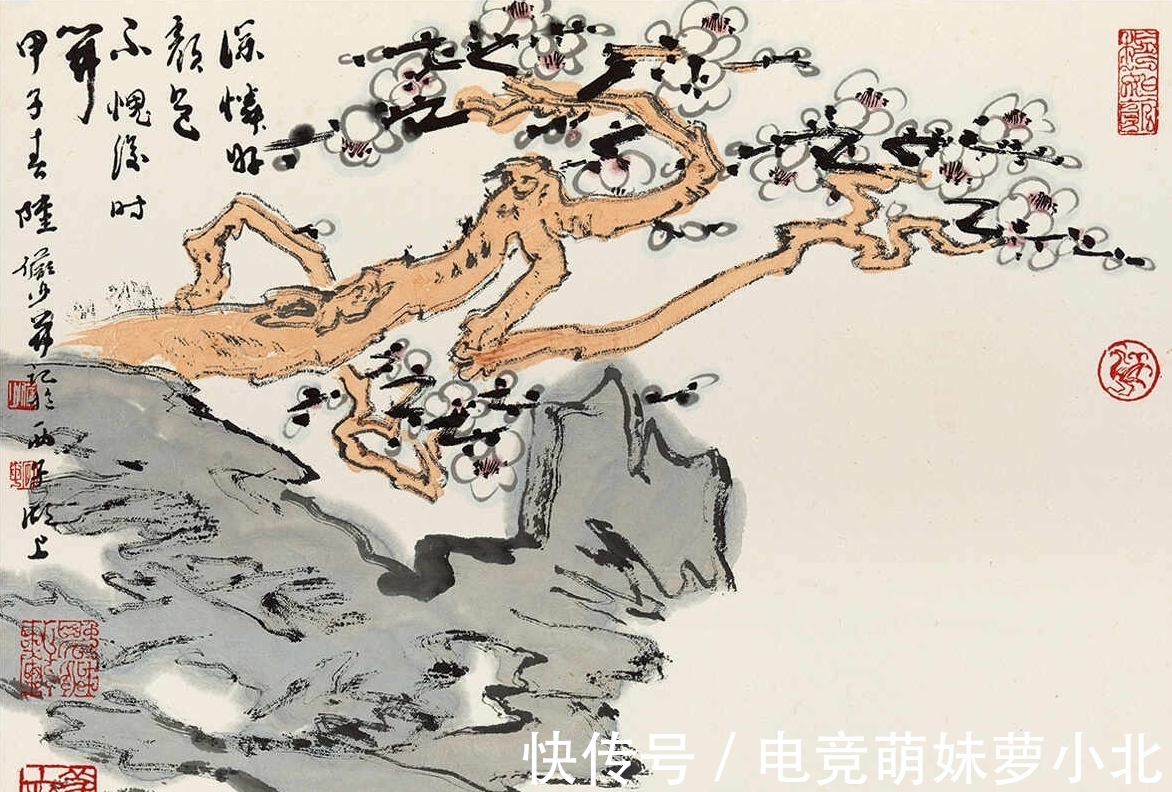 深憐好
顏色
不愧後时
開
甲子春陸儼少并記於西子湖上
快传号 / 电竞萌妹萝小北